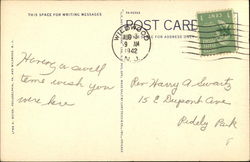 THIS SPACE FOR WRITING MESSAGES
POST CARD
WILDWOOD
AUG
9 AM
1942
N.J.
Having a swell
time wish you
were here
Rev Harry A Swartz
15 E Dupont Ave
Ridely Park